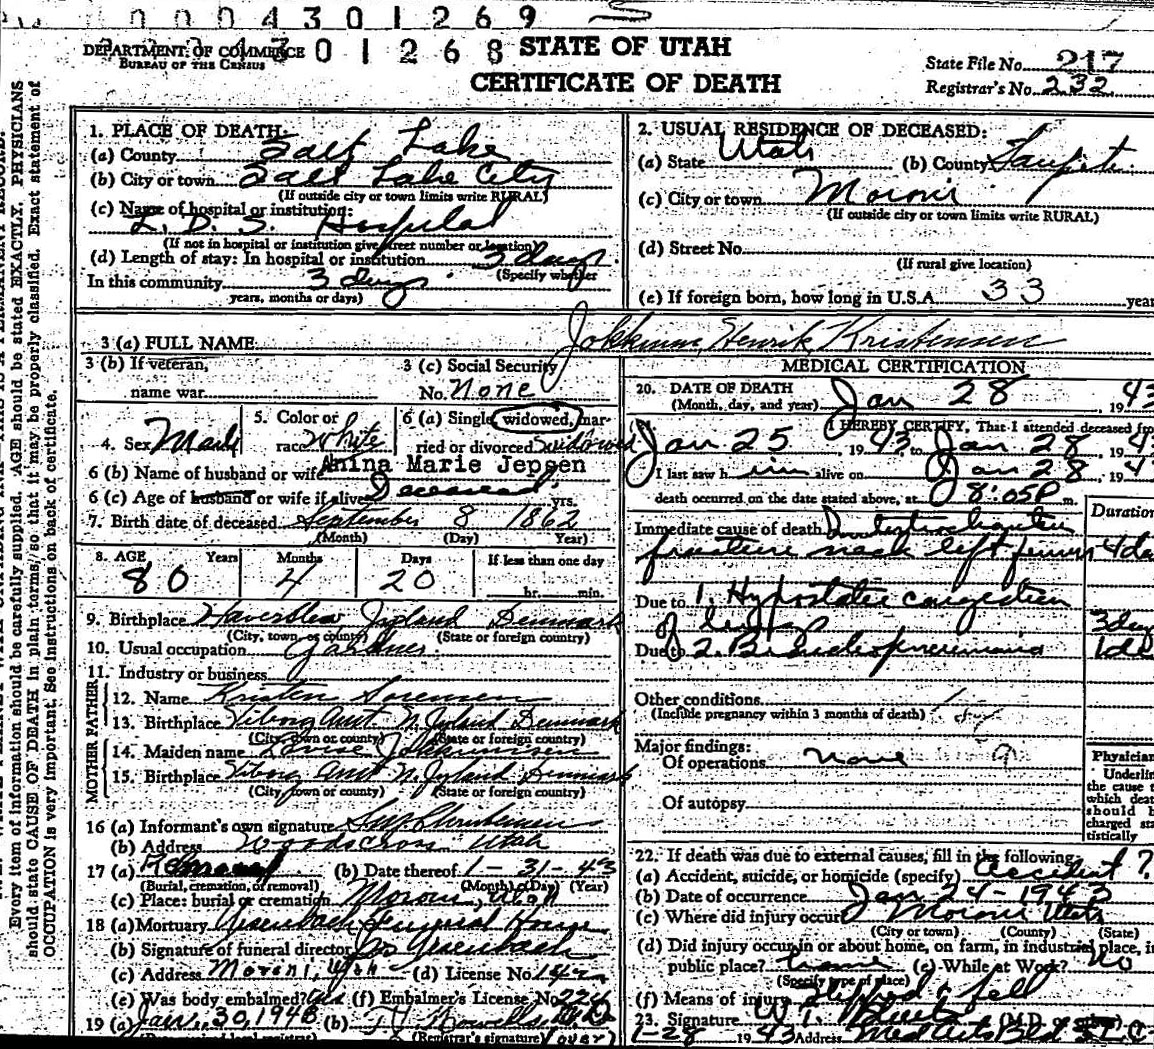 0004301269
DEPARTMENT OF COMMERCE
BUREAU OF THE CENSUS
4301268
STATE OF UTAH
CERTIFICATE OF DEATH
State File No. 217
Registrar's No. 232
Every item of information should be carefully supplied. AGE should be stated EXACTLY. PHYSICIANS
should state CAUSE OF DEATH in plain terms, so that it may be properly classified. Exact statement of
OCCUPATION is very important. See instructions on back of certificate.
1. PLACE OF DEATH:
(a) County Salt Lake
(b) City or town Salt Lake City
(If outside city or town limits write RURAL)
(c) Name of hospital or institution:
L. D. S. Hospital
(If not in hospital or institution give street number or location)
(d) Length of stay: In hospital or institution 3 days
(Specify whether
In this community 3 days
years, months or days)
2. USUAL RESIDENCE OF DECEASED:
(a) State Utah (b) County Sanpete
(c) City or town Moroni
(If outside city or town limits write RURAL)
(d) Street No.
(If rural give location)
(e) If foreign born, how long in U.S.A. 33 year
3 (a) FULL NAME Henrik Kristensen
3 (b) If veteran,
name war
3 (c) Social Security
No. none
4. Sex Male
5. Color or
race White
6 (a) Single, widowed, mar-
ried or divorced Widowed
6 (b) Name of husband or wife Anina Marie Jepsen
6 (c) Age of husband or wife if alive Deceased yrs.
7. Birth date of deceased September 8 1862
(Month) (Day) Year)
8. AGE Years Months Days If less than one day
80 4 20 hr. min.
9. Birthplace Jyland Denmark
(City, town, or county) (State or foreign country)
10. Usual occupation Gardner
11. Industry or business
FATHER
12. Name Kristen Sorensen
13. Birthplace Viborg Amt. N. Jyland Denmark
(City, town or county) (State or foreign country)
MOTHER
14. Maiden name
15. Birthplace Viborg Amt N. Jyland Denmark
(City, town or county) (State or foreign country)
16 (a) Informant's own signature Christensen
(b) Address Woodscross Utah
17 (a) Removal (b) Date thereof 1-31-43
(Burial, cremation, or removal) (Month) (Day) (Year)
(c) Place: burial or cremation Moroni, Utah
18 (a) Mortuary Ursenbach Funeral Home
(b) Signature of funeral director Ursenbach
(c) Address Moroni, Utah (d) License No.
(e) Was body embalmed? (f) Embalmer's License No.
19 (a) Jan. 30, 1943 (b)
(Registrar's signature) (over)
MEDICAL CERTIFICATION
20. DATE OF DEATH
(Month, day, and year) Jan 28, 1943
I HEREBY CERTIFY, That I attended deceased from
Jan 25, 1943 to Jan 28, 19
I last saw him alive on Jan 28, 19
death occurred on the date stated above, at 8:05P m.
Duration
Immediate cause of death
fracture neck left femur 4 da
Due to 1. Hypostatic congestion
of lungs 3 day
Due to 2. Bronchopneumonia
Other conditions
(Include pregnancy within 3 months of death)
Major findings:
Of operations none
Of autopsy
Physician
Underlin
the cause t
which deat
should b
charged sta
tistically
22. If death was due to external causes, fill in the following:
(a) Accident, suicide, or homicide (specify) accident ?
(b) Date of occurrence Jan 24-1943
(c) Where did injury occur Moroni Utah
(City or town) (County) (State)
(d) Did injury occur in or about home, on farm, in industrial place, in
public place? home (e) While at Work? no
(Specify type of place)
(f) Means of injury Slipped & fell
23. Signature (M.D. or other)
1-28 1943 Address Med Arts Bld S.L.C